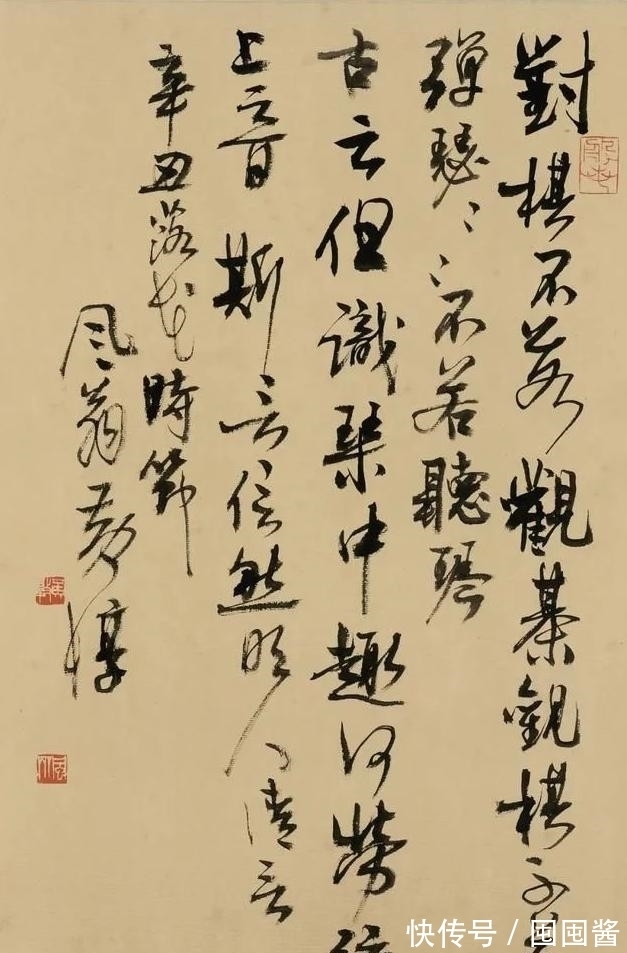 對棋不若觀棊觀棋不
彈瑟〻〻不若聽琴
古云但識琴中趣何勞
上音斯言信然明人清言
辛丑落花時節
風翁黃惇
快传号 / 囤囤酱